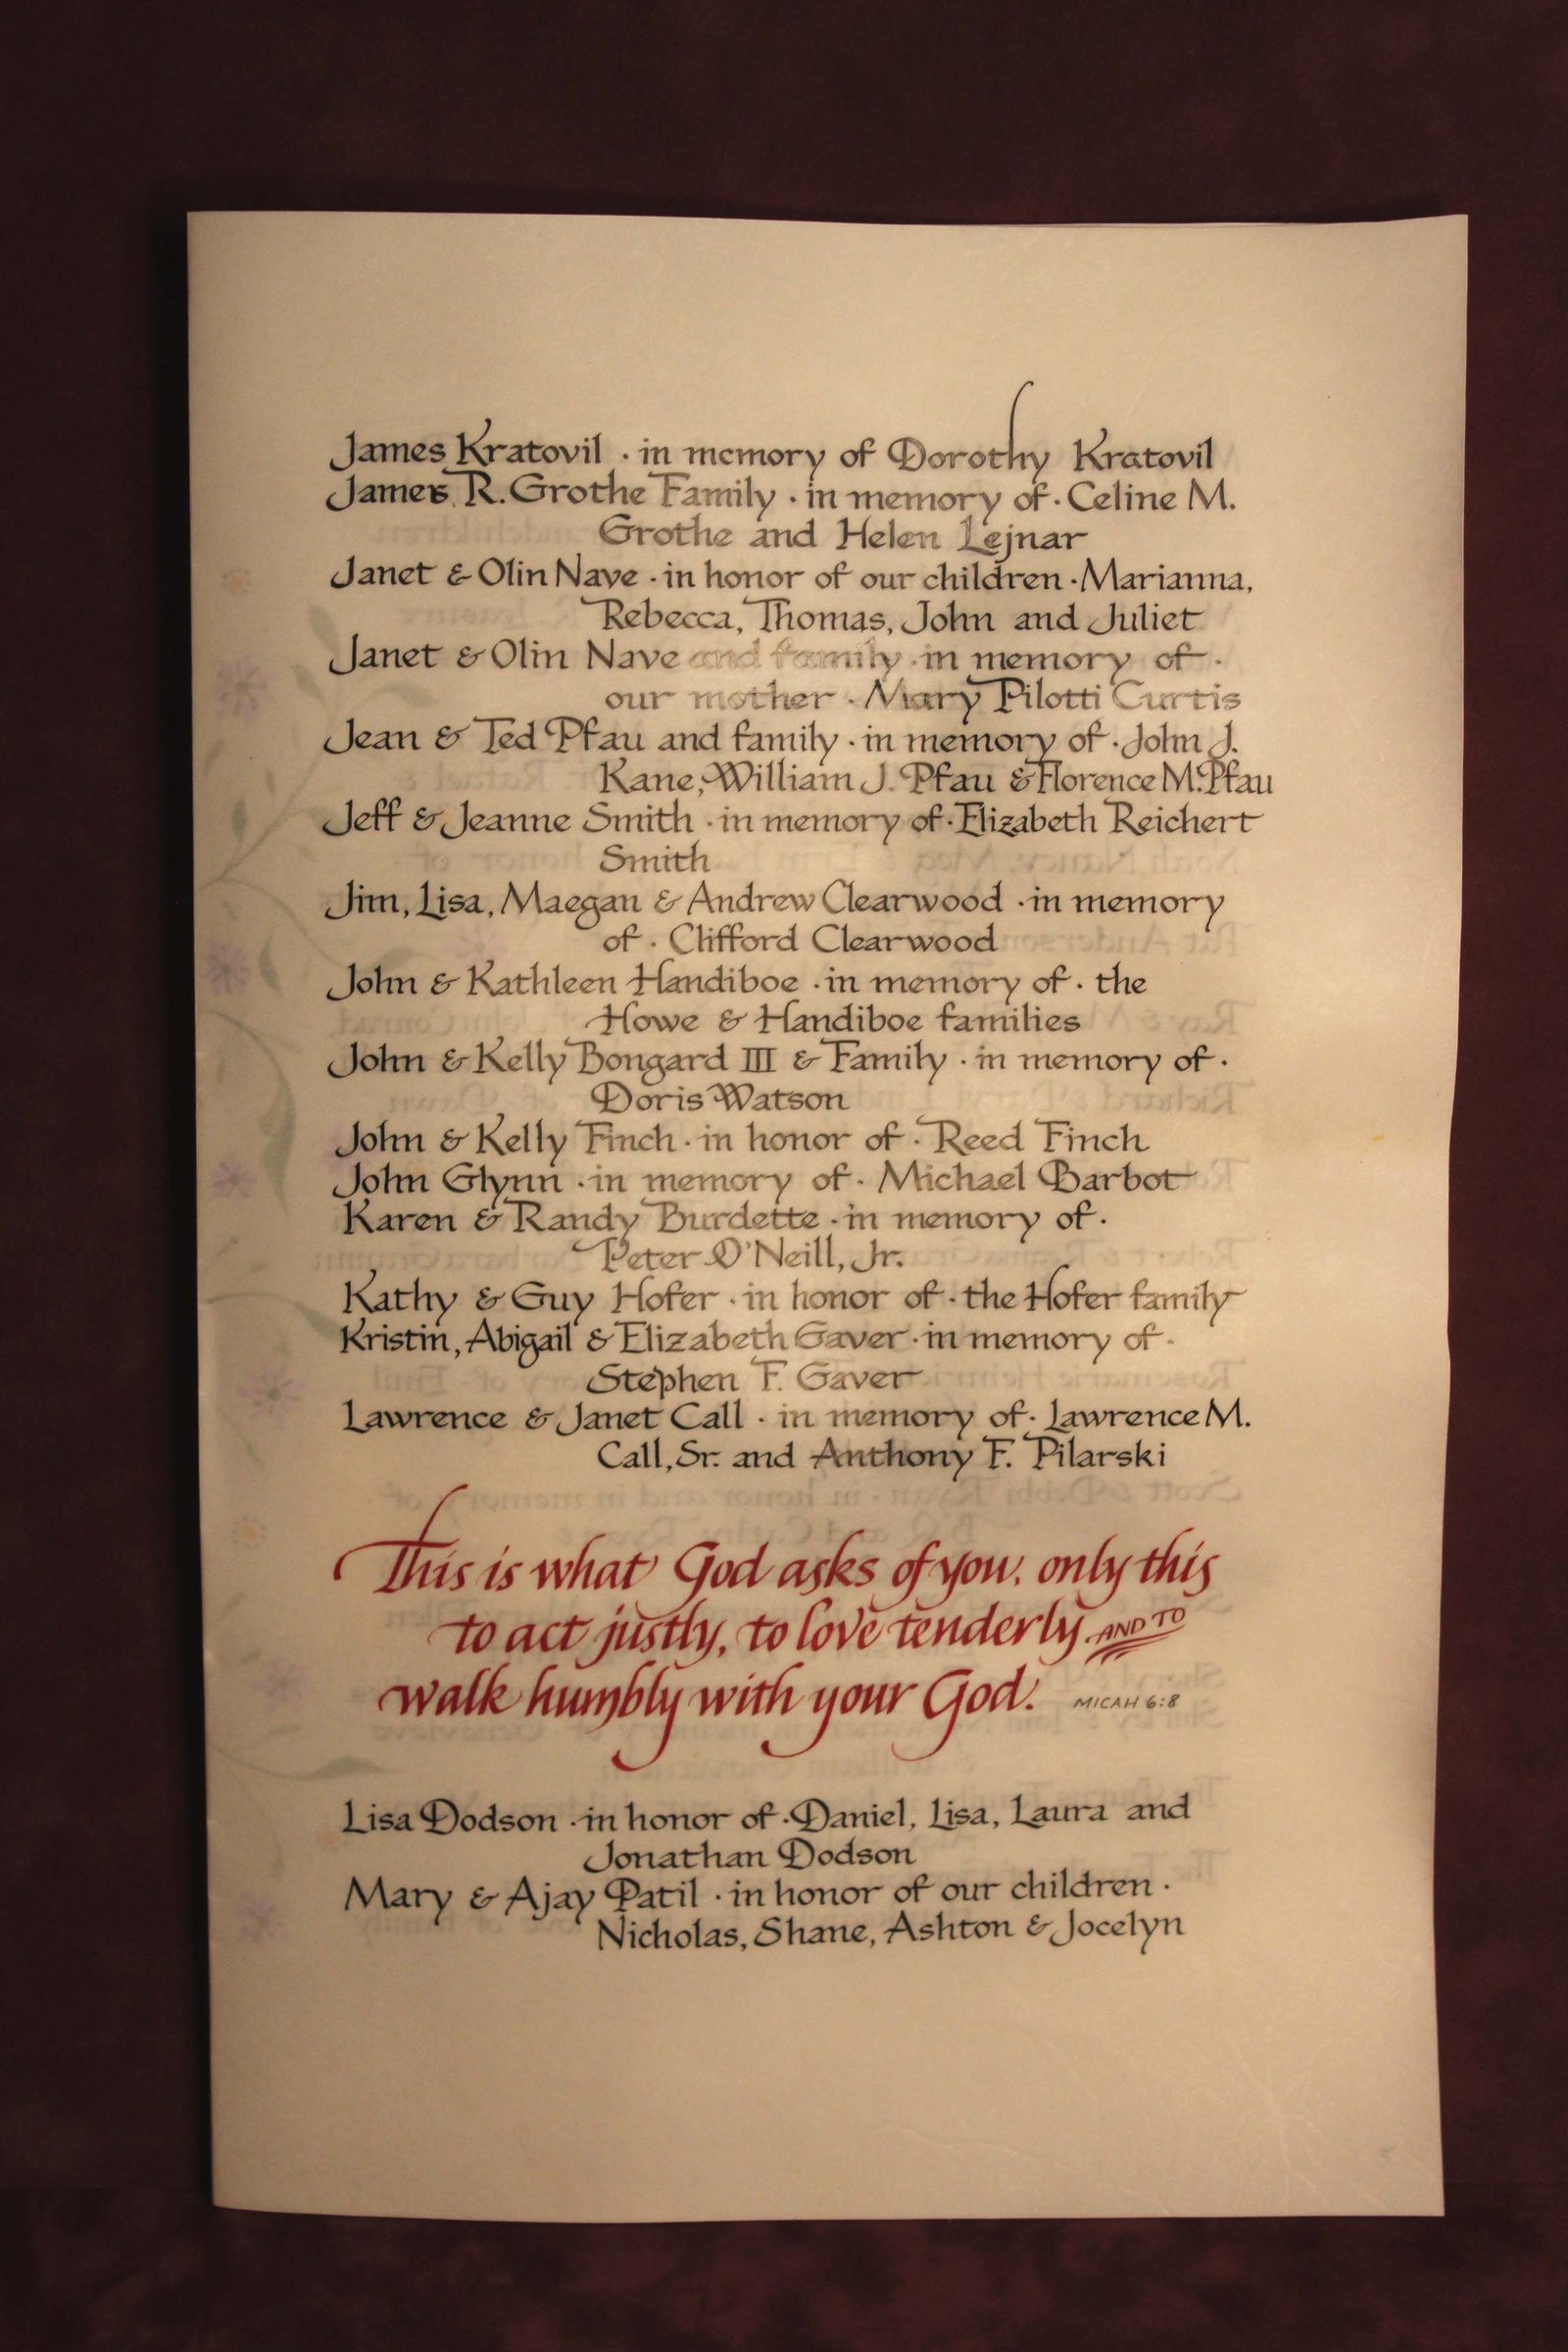 James Kratovil · in memory of Dorothy Kratovil
James R. Grothe Family · in memory of · Celine M.
Grothe and Helen Lejnar
Janet & Olin Nave · in honor of our children · Marianna,
Rebecca, Thomas, John and Juliet
Janet & Olin Nave and family · in memory of ·
our mother · Mary Pilotti Curtis
Jean & Ted Pfau and family · in memory of · John J.
Kane, William J. Pfau & Florence M. Pfau
Jeff & Jeanne Smith · in memory of · Elizabeth Reichert
Smith
Jim, Lisa, Maegan & Andrew Clearwood · in memory
of · Clifford Clearwood
John & Kathleen Handiboe · in memory of · the
Howe & Handiboe families
John & Kelly Bongard III & Family · in memory of ·
Doris Watson
John & Kelly Finch · in honor of · Reed Finch
John Glynn · in memory of · Michael Barbot
Karen & Randy Burdette · in memory of ·
Peter O'Neill, Jr.
Kathy & Guy Hofer · in honor of · the Hofer family
Kristin, Abigail & Elizabeth Gaver · in memory of ·
Stephen F. Gaver
Lawrence & Janet Call · in memory of · Lawrence M.
Call, Sr. and Anthony F. Pilarski
This is what God asks of you, only this
to act justly, to love tenderly AND TO
walk humbly with your God. MICAH 6:8
Lisa Dodson · in honor of · Daniel, Lisa, Laura and
Jonathan Dodson
Mary & Ajay Patil · in honor of our children ·
Nicholas, Shane, Ashton & Jocelyn